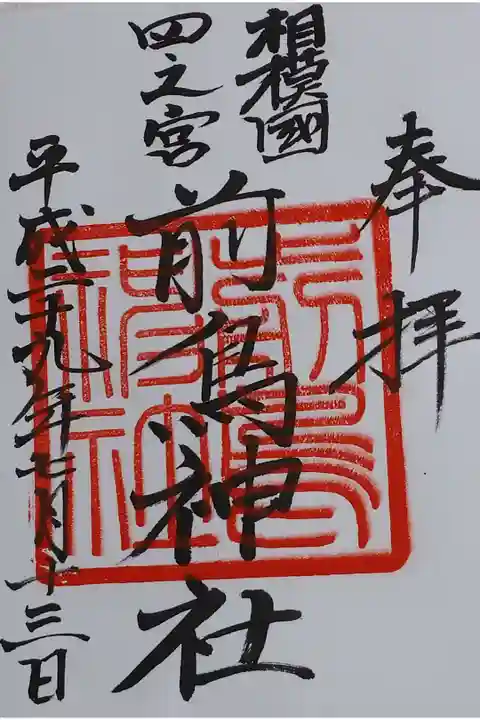 奉拝
相模國
四之宮
前鳥神社
平成二十九年七月十三日